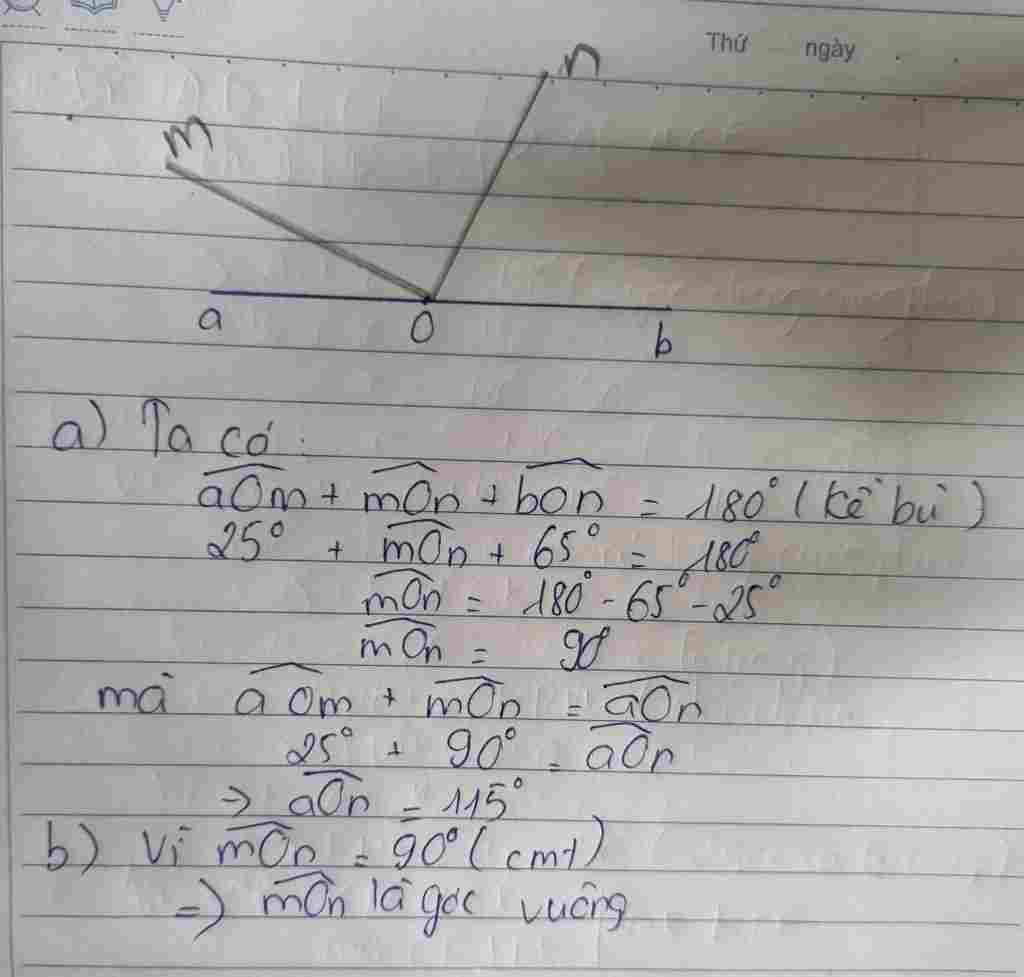 Thứ ngày
n
m
a
O
b
a) Ta có:
aOm + mOn + bOn = 180° (kề bù)
25° + mOn + 65° = 180°
mOn = 180° - 65° - 25°
mOn = 90°
mà aOm + mOn = aOn
25° + 90° = aOn
=> aOn = 115°
b) Vì mOn = 90° (cmt)
=> mOn là góc vuông